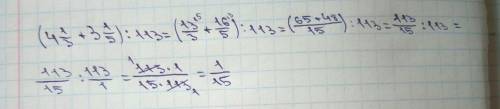 (4 1/3 + 3 1/5) : 113 = (13⁵/3 + 16³/5) : 113 = ((65+48)/15) : 113 = 113/15 : 113 =
113/15 : 113/1 = (¹113·1)/(15·113₁) = 1/15